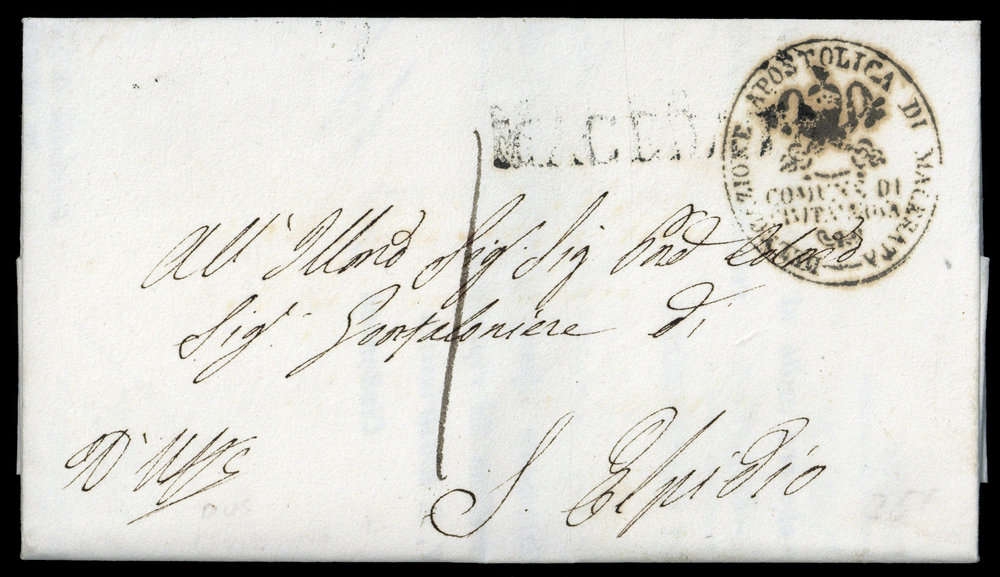 MACERATA
DELEGAZIONE APOSTOLICA DI MACERATA
COMUNE DI
CIVITANOVA
All' Illmo Sig. Sig. Pnd Colmo
Sig. Gonfaloniere di
S. Elpidio
D' Uffo
1